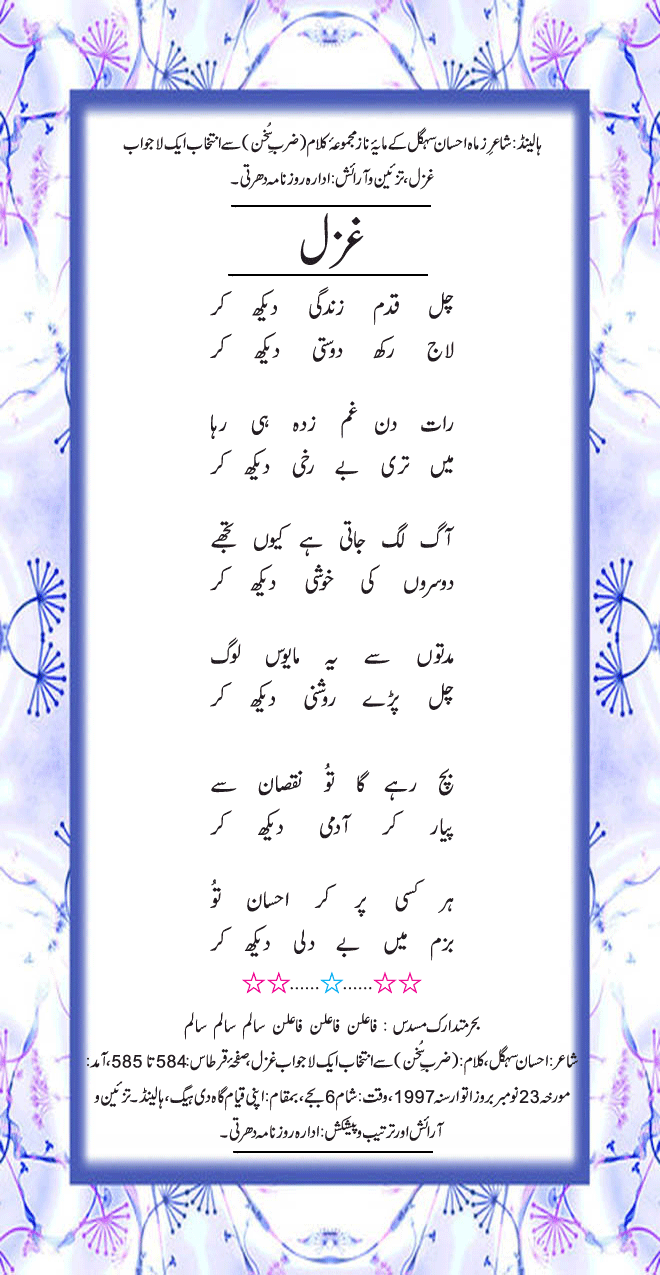 ہالینڈ: شاعرِ زماہ احسان سہگل کے مایۂ ناز مجموعۂ کلام (ضربِ سُخن) سے انتخاب ایک لاجواب
غزل، تزئین و آرائش: ادارہ روزنامہ دھرتی۔
غزل
چل قدم زندگی دیکھ کر
لاج رکھ دوستی دیکھ کر
رات دن غم زدہ ہی رہا
میں تری بے رخی دیکھ کر
آگ لگ جاتی ہے کیوں تجھے
دوسروں کی خوشی دیکھ کر
مدتوں سے یہ مایوس لوگ
چل پڑے روشنی دیکھ کر
بچ رہے گا تُو نقصان سے
پیار کر آدمی دیکھ کر
ہر کسی پر کر احسان تُو
بزم میں بے دلی دیکھ کر
☆☆......☆......☆☆
بحر متدارک مسدس : فاعلن فاعلن فاعلن سالم سالم سالم
شاعر: احسان سہگل، کلام: (ضربِ سُخن) سے انتخاب ایک لاجواب غزل، صفحۂ قرطاس: 584 تا 585، آمد:
مورخہ 23 نومبر بروز اتوار سنہ 1997، وقت: شام 6 بجے، بمقام: اپنی قیام گاہ دی ہیگ، ہالینڈ۔ تزئین و
آرائش اور ترتیب و پیشکش: ادارہ روزنامہ دھرتی۔